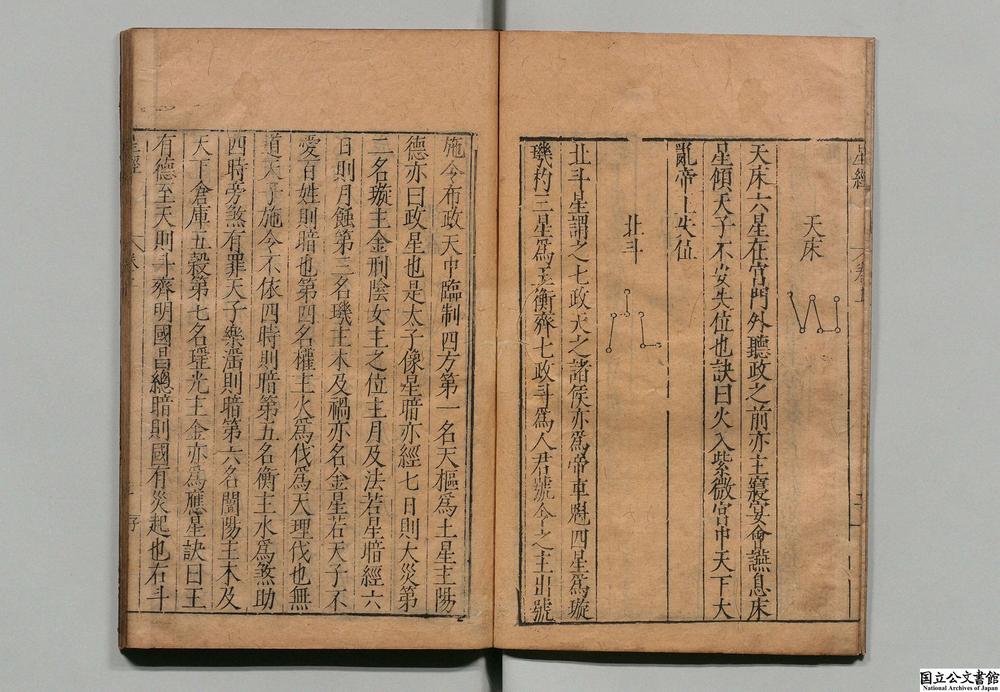 星經
卷上
天床
天床六星在宮門外聽政之前亦主寢宴會讌息床
星傾天子不安失位也訣曰火入紫微宮中天下大
亂帝王失位
北斗
北斗星謂之七政天之諸侯亦爲帝車魁四星爲璇
璣杓三星爲玉衡齊七政斗爲人君號令之主出號
施令布政天中臨制四方第一名天樞爲土星主陽
德亦曰政星也是太子像星暗亦經七日則大災第
二名璇主金刑陰女主之位主月及法若星暗經六
日則月蝕第三名璣主木及禍亦名金星若天子不
愛百姓則暗也第四名權主火爲伐爲天理伐也無
道天子施令不依四時則暗第五名衡主水爲煞助
四時旁煞有罪天子樂滛則暗第六名闓陽主木及
天下倉庫五穀第七名瑤光主金亦爲應星訣曰王
有德至天則斗齊明國昌總暗則國有災起也右斗
星經
卷
国立公文書館
National Archives of Japan